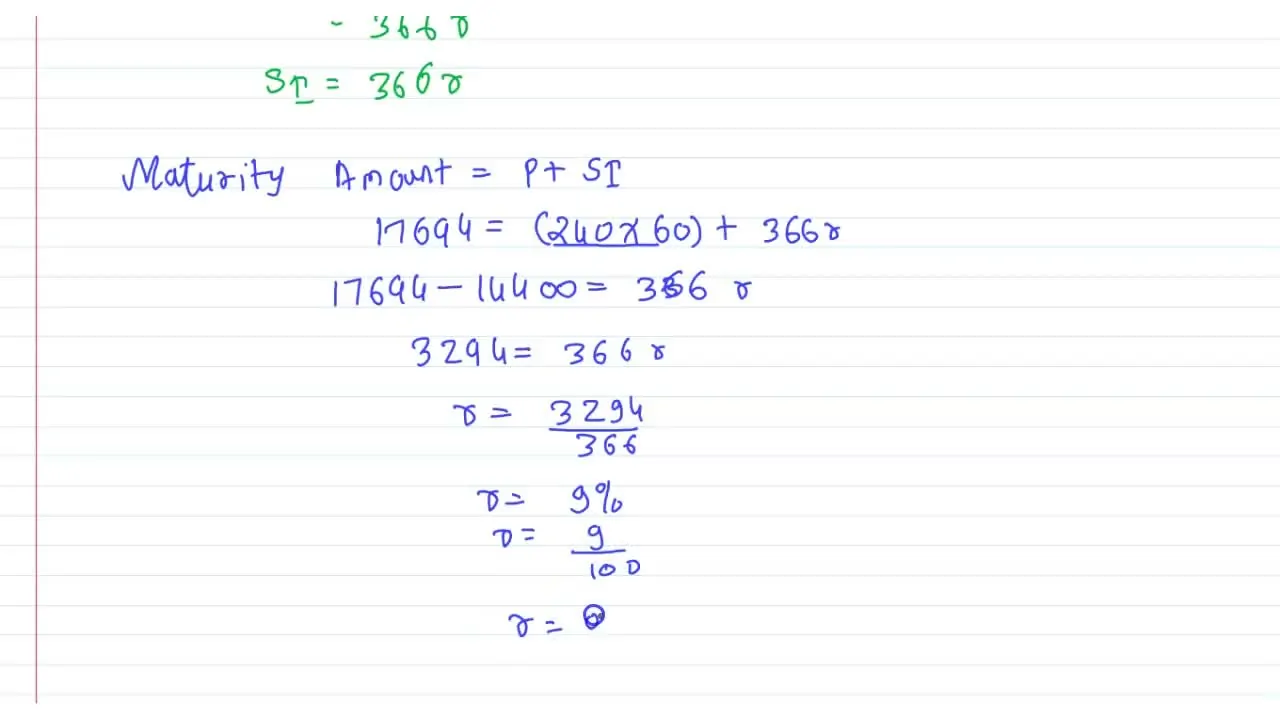 - 366 r
SI = 366 r
Maturity Amount = P + SI
17694 = (240 x 60) + 366 r
17694 - 14400 = 366 r
3294 = 366 r
r = 3294/366
r = 9%
r = 9/100
r =